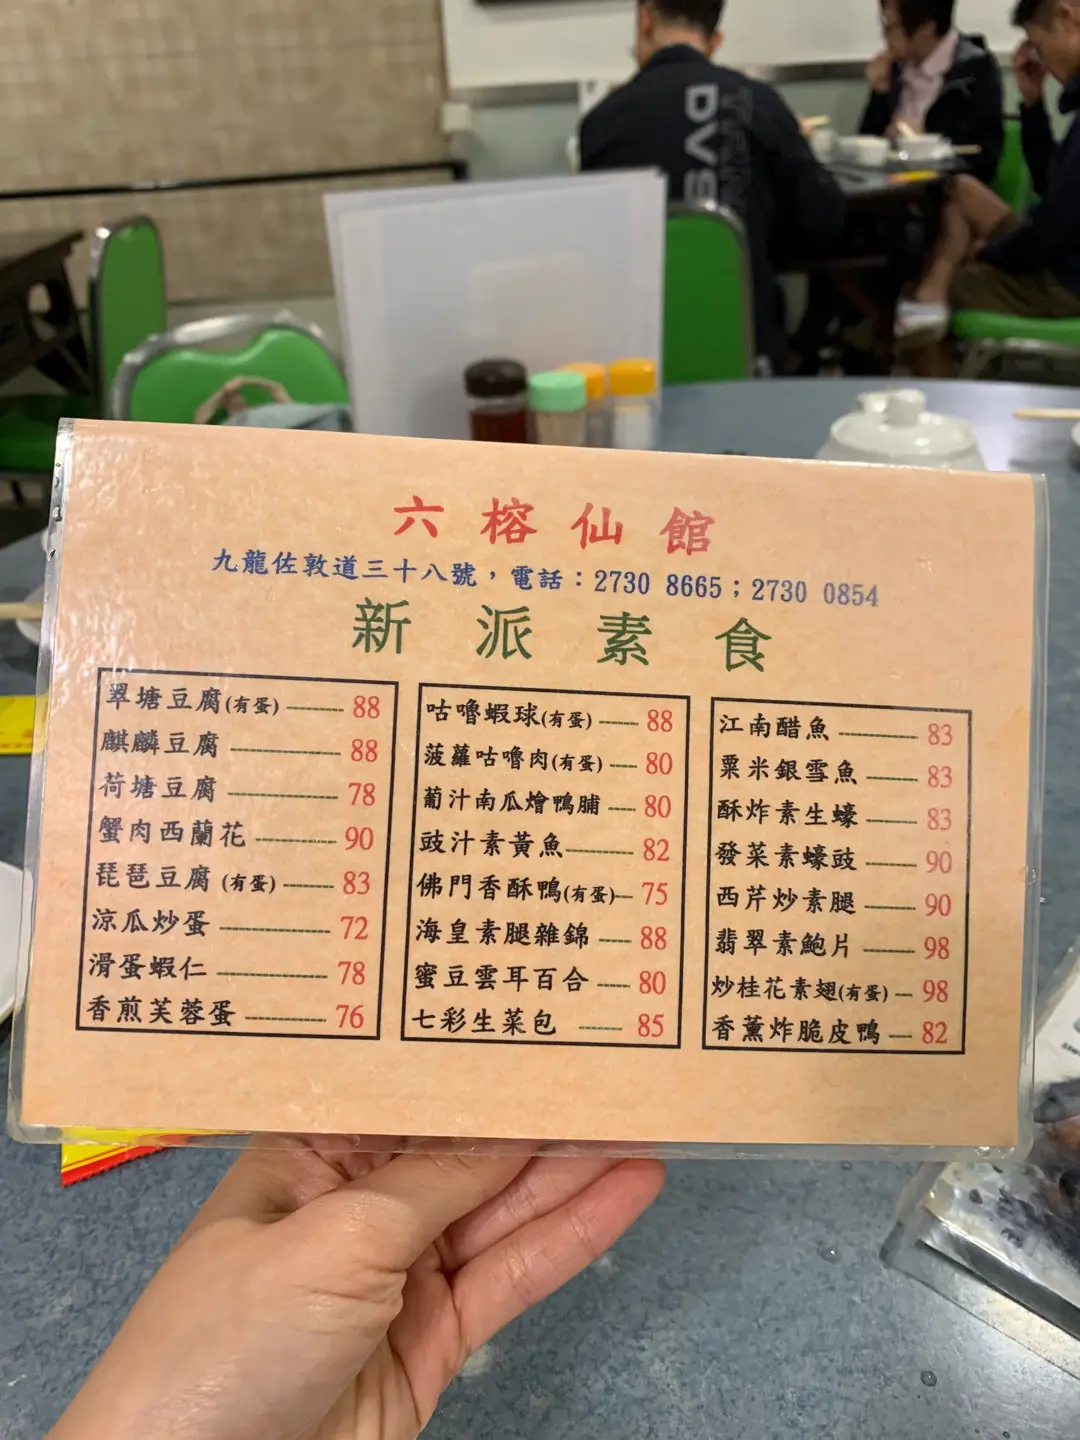 六榕仙館
九龍佐敦道三十八號，電話：2730 8665；2730 0854
新派素食
翠塘豆腐(有蛋) 88
麒麟豆腐 88
荷塘豆腐 78
蟹肉西蘭花 90
琵琶豆腐 (有蛋) 83
涼瓜炒蛋 72
滑蛋蝦仁 78
香煎芙蓉蛋 76
咕嚕蝦球(有蛋) 88
菠蘿咕嚕肉(有蛋) 80
葡汁南瓜燴鴨脯 80
豉汁素黃魚 82
佛門香酥鴨(有蛋) 75
海皇素腿雜錦 88
蜜豆雲耳百合 80
七彩生菜包 85
江南醋魚 83
粟米銀雪魚 83
酥炸素生蠔 83
發菜素蠔豉 90
西芹炒素腿 90
翡翠素鮑片 98
炒桂花素翅(有蛋) 98
香薰炸脆皮鴨 82
DVS